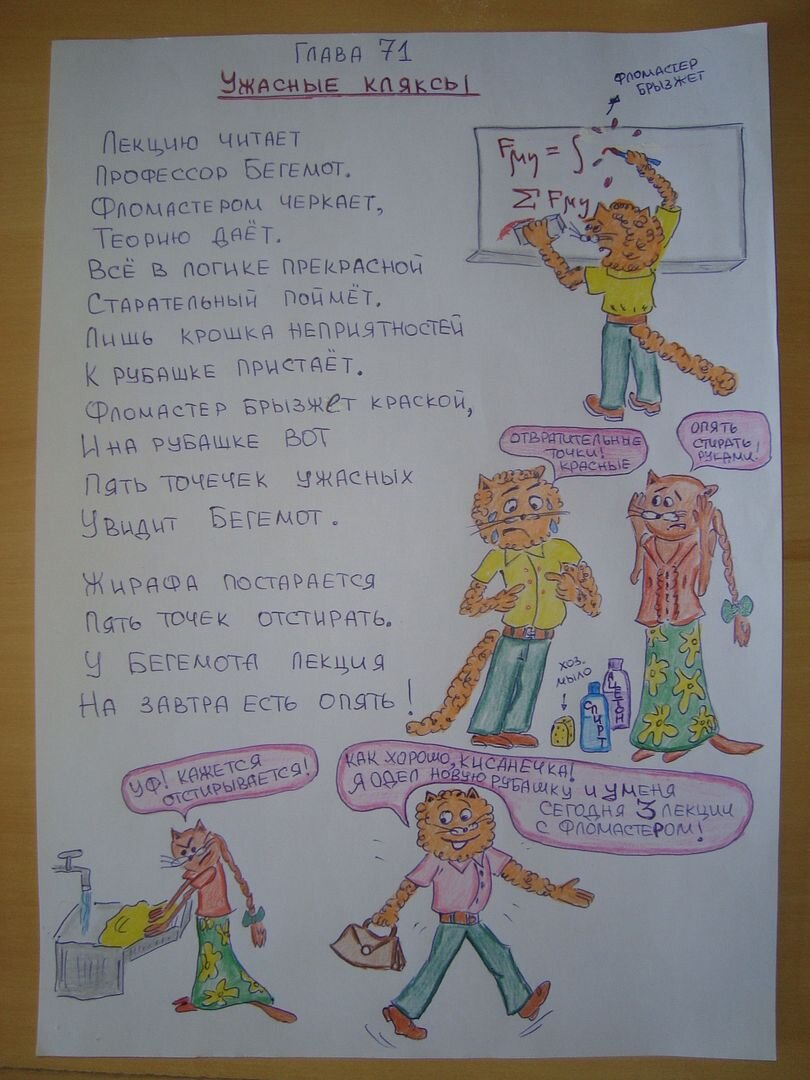 Глава 71
Ужасные кляксы
Фломастер
брызжет
Лекцию читает
Профессор Бегемот.
Фломастером черкает,
Теорию даёт.
Всё в логике прекрасной
Старательный поймёт.
Лишь крошка неприятностей
К рубашке пристаёт.
Фломастер брызжет краской,
И на рубашке вот
Пять точечек ужасных
Увидит Бегемот.
Fμη = ∫
Σ Fμη
Отвратительные
точки!
Красные
Опять
стирать
руками!
Жирафа постарается
Пять точек отстирать.
У Бегемота лекция
На завтра есть опять!
хоз.
мыло
Спирт
Ацетон
Уф! Кажется
отстирывается!
Как хорошо, Кисанечка!
Я одел новую рубашку и у меня
сегодня 3 лекции
с фломастером!